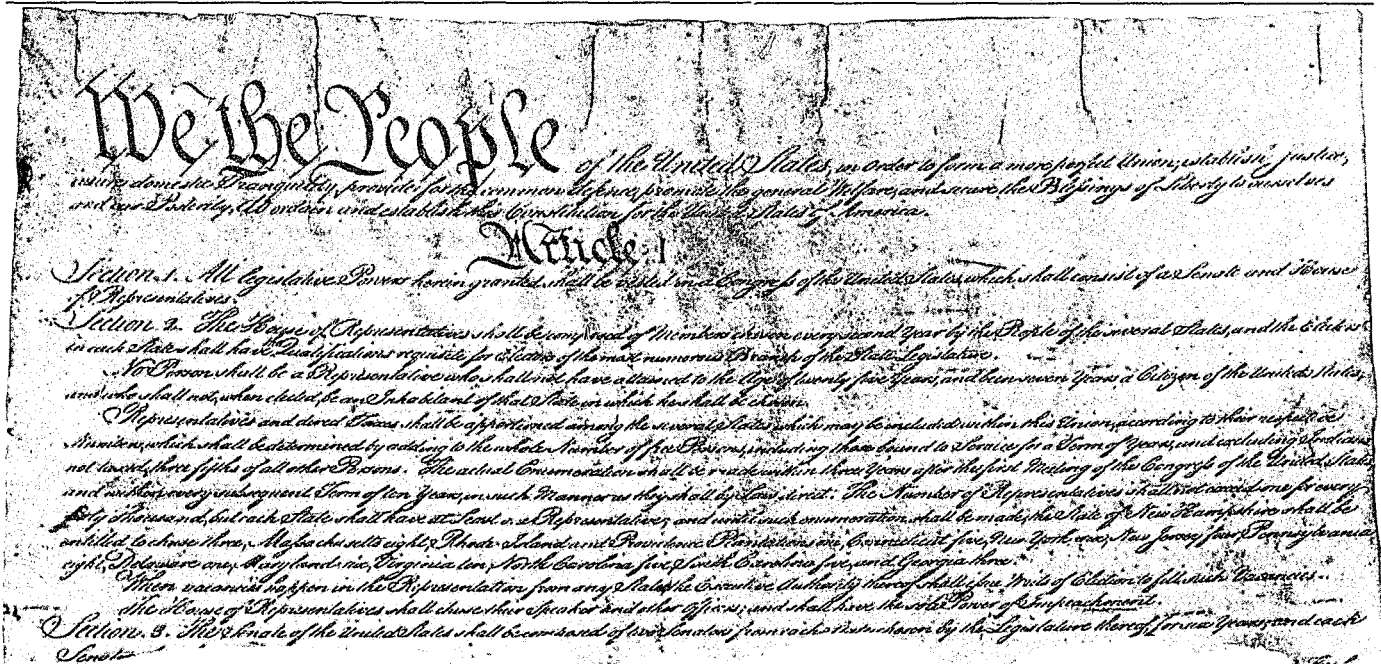 We the People of the United States, in Order to form a more perfect Union, establish Justice,
insure domestic Tranquility, provide for the common defence, promote the general Welfare, and secure the Blessings of Liberty to ourselves
and our Posterity, do ordain and establish this Constitution for the United States of America.
Article. I
Section. 1. All legislative Powers herein granted shall be vested in a Congress of the United States, which shall consist of a Senate and House
of Representatives.
Section. 2. The House of Representatives shall be composed of Members chosen every second Year by the People of the several States, and the Electors
in each State shall have Qualifications requisite for Electors of the most numerous Branch of the State Legislature.
No Person shall be a Representative who shall not have attained to the Age of twenty five Years, and been seven Years a Citizen of the United States,
and who shall not, when elected, be an Inhabitant of that State in which he shall be chosen.
Representatives and direct Taxes shall be apportioned among the several States which may be included within this Union, according to their respective
Numbers, which shall be determined by adding to the whole Number of free Persons, including those bound to Service for a Term of Years, and excluding Indians
not taxed, three fifths of all other Persons. The actual Enumeration shall be made within three Years after the first Meeting of the Congress of the United States,
and within every subsequent Term of ten Years, in such Manner as they shall by Law direct. The Number of Representatives shall not exceed one for every
Thousand, but each State shall have at Least one Representative; and until such enumeration shall be made, the State of New Hampshire shall be
entitled to chuse three, Massachusetts eight, Rhode-Island and Providence Plantations one, Connecticut five, New-York six, New Jersey four, Pennsylvania
eight, Delaware one, Maryland six, Virginia ten, North Carolina five, South Carolina five, and Georgia three.
When vacancies happen in the Representation from any State, the Executive Authority thereof shall issue Writs of Election to fill such Vacancies.
The House of Representatives shall chuse their Speaker and other Officers; and shall have the sole Power of Impeachment.
Section. 3. The Senate of the United States shall be composed of two Senators from each State, chosen by the Legislature thereof, for six Years; and each
Senator